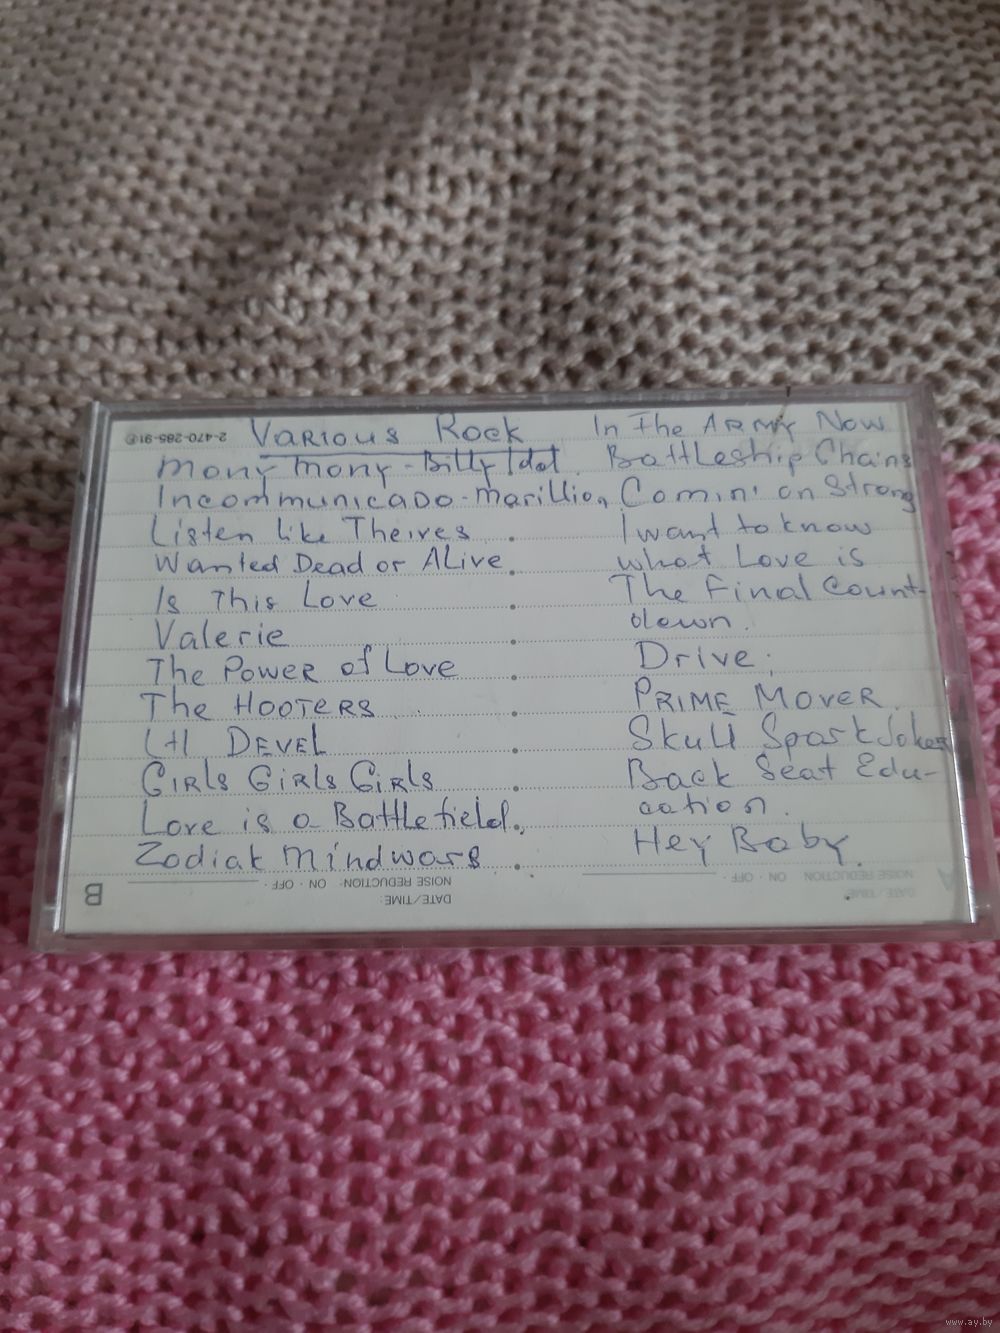 2-470-285-91
VARIOUS ROCK
Mony Mony - Billy Idol.
Incommunicado - Marillion
Listen like Theives
Wanted Dead or Alive.
Is This Love
Valerie
The Power of Love
The HOOTERS
Lil DEVEL
GIRLS GIRLS GIRLS
Love is a Battlefield.
Zodiak Mindwars
In The ARMY Now
Battleship Chains
Comin' on Strong
I want to know
what Love is
The Final Count-
down.
Drive.
PRIME MOVER.
Skull Spark Joker
Back Seat Edu-
cation.
Hey Baby.
B
NOISE REDUCTION · ON · OFF ·
DATE/TIME:
A
NOISE REDUCTION ON · OFF ·
DATE/TIME:
www.ay.by